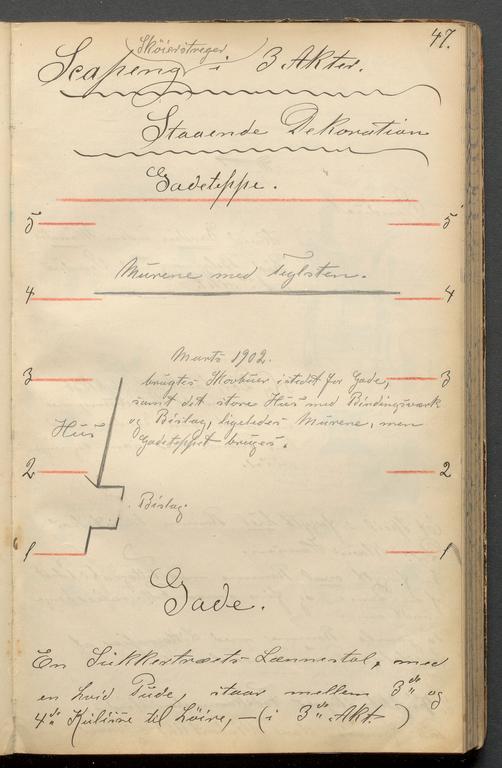 47.
Skøierstreger
Scapeng i 3 Akter.
Staaende Dekoration
Gadeteppe.
5 5
Murene med Teglsten.
4 4
Marts 1902.
3 brugtes Skovbuer istedet for Gade, 3
samt det store Hus med Bindingsværk
Hus og Bislag, ligeledes Murene, men
Gadeteppet bruges.
2 2
Bislag.
1 1
Gade.
En Sukkertræets Lænnestol, med
en hvid Pude, staar mellem 3die og
4de Kulisse til Høire, – (i 3die Akt.)